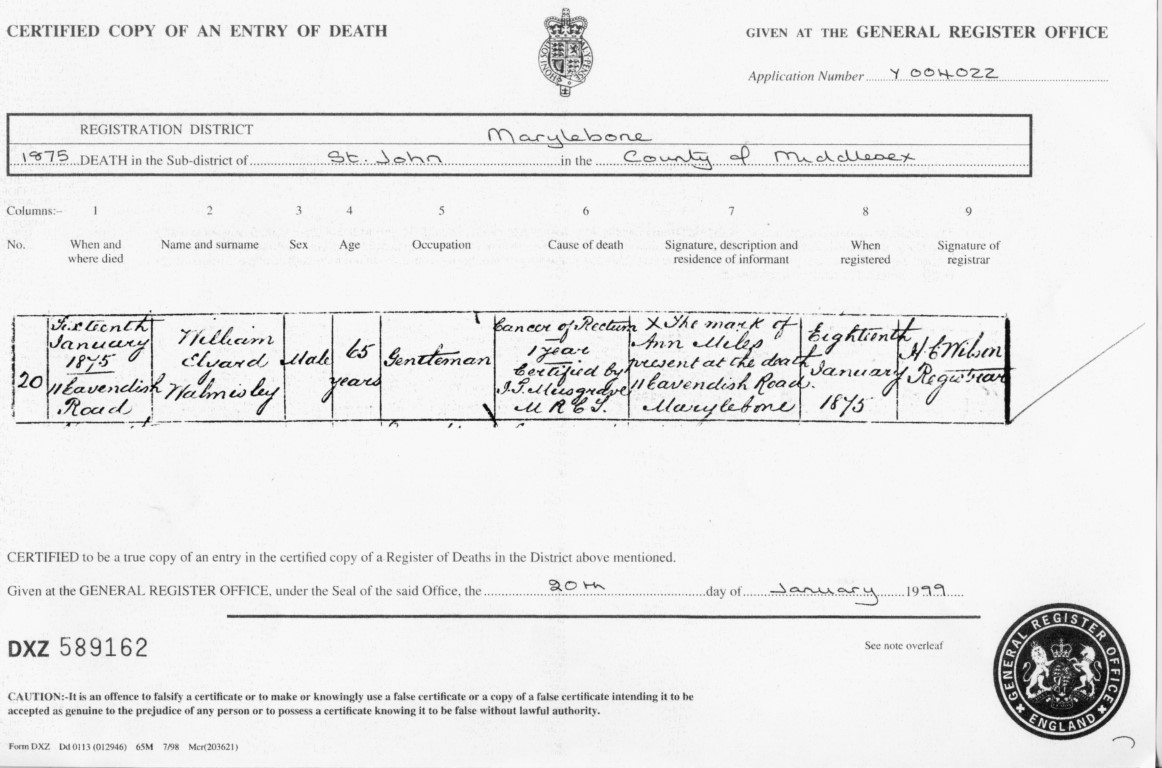 CERTIFIED COPY OF AN ENTRY OF DEATH
GIVEN AT THE GENERAL REGISTER OFFICE
Application Number Y 004022
REGISTRATION DISTRICT Marylebone
1875 DEATH in the Sub-district of St. John in the County of Middlesex
Columns:- 1 2 3 4 5 6 7 8 9
No. When and where died Name and surname Sex Age Occupation Cause of death Signature, description and residence of informant When registered Signature of registrar
20
Sixteenth
January
1875
11 Cavendish
Road
William
Elvard
Walmisley
Male
65
years
Gentleman
Cancer of Rectum
1 year
Certified by
J.T. Musgrave
M R C S.
X The mark of
Ann Miles
present at the death
11 Cavendish Road.
Marylebone
Eighteenth
January
1875
H C Wilson
Registrar
CERTIFIED to be a true copy of an entry in the certified copy of a Register of Deaths in the District above mentioned.
Given at the GENERAL REGISTER OFFICE, under the Seal of the said Office, the 20th day of January 1999
DXZ 589162
See note overleaf
GENERAL REGISTER OFFICE
ENGLAND
CAUTION:-It is an offence to falsify a certificate or to make or knowingly use a false certificate or a copy of a false certificate intending it to be
accepted as genuine to the prejudice of any person or to possess a certificate knowing it to be false without lawful authority.
Form DXZ Dd 0113 (012946) 65M 7/98 Mcr(203621)